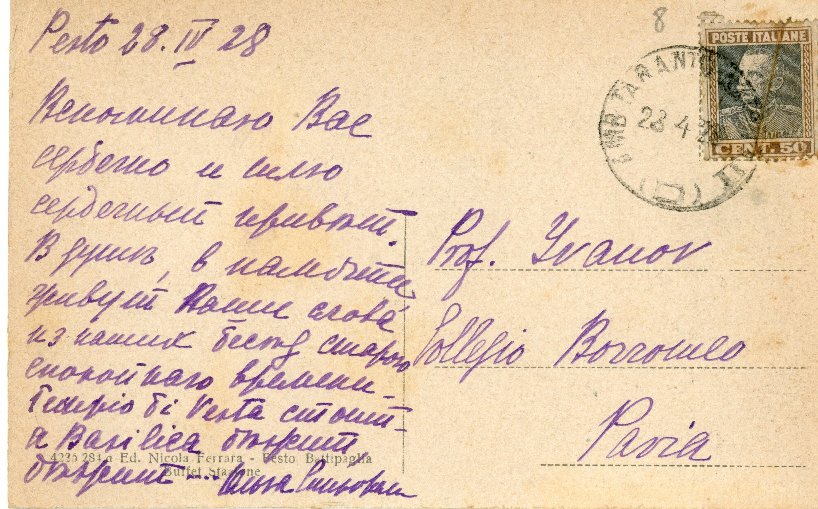 Pesto 28. IV 28
Вспоминаю Вас
сердечно и шлю
сердечный привѣт.
В душѣ, в памяти
живут Ваши слова
из наших бесед старого
спокойнаго времени.
Tempio di Vesta стоит
а Basilica
4235 284 a Ed. Nicola Ferrara - Pesto Battipaglia
Buffet Stazione
Ольга
8
POSTE ITALIANE
CENT. 50
AMB TARANTO
28 4 28
Prof. Ivanov
Collegio Borromeo
Pavia